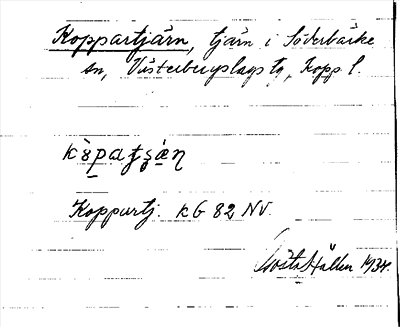 Koppartjärn, tjärn i Söderbärke
sn, Västerbergslags tg, Kopp l.
Koppartj. kG 82 NV.
Gösta Hallen 1934.